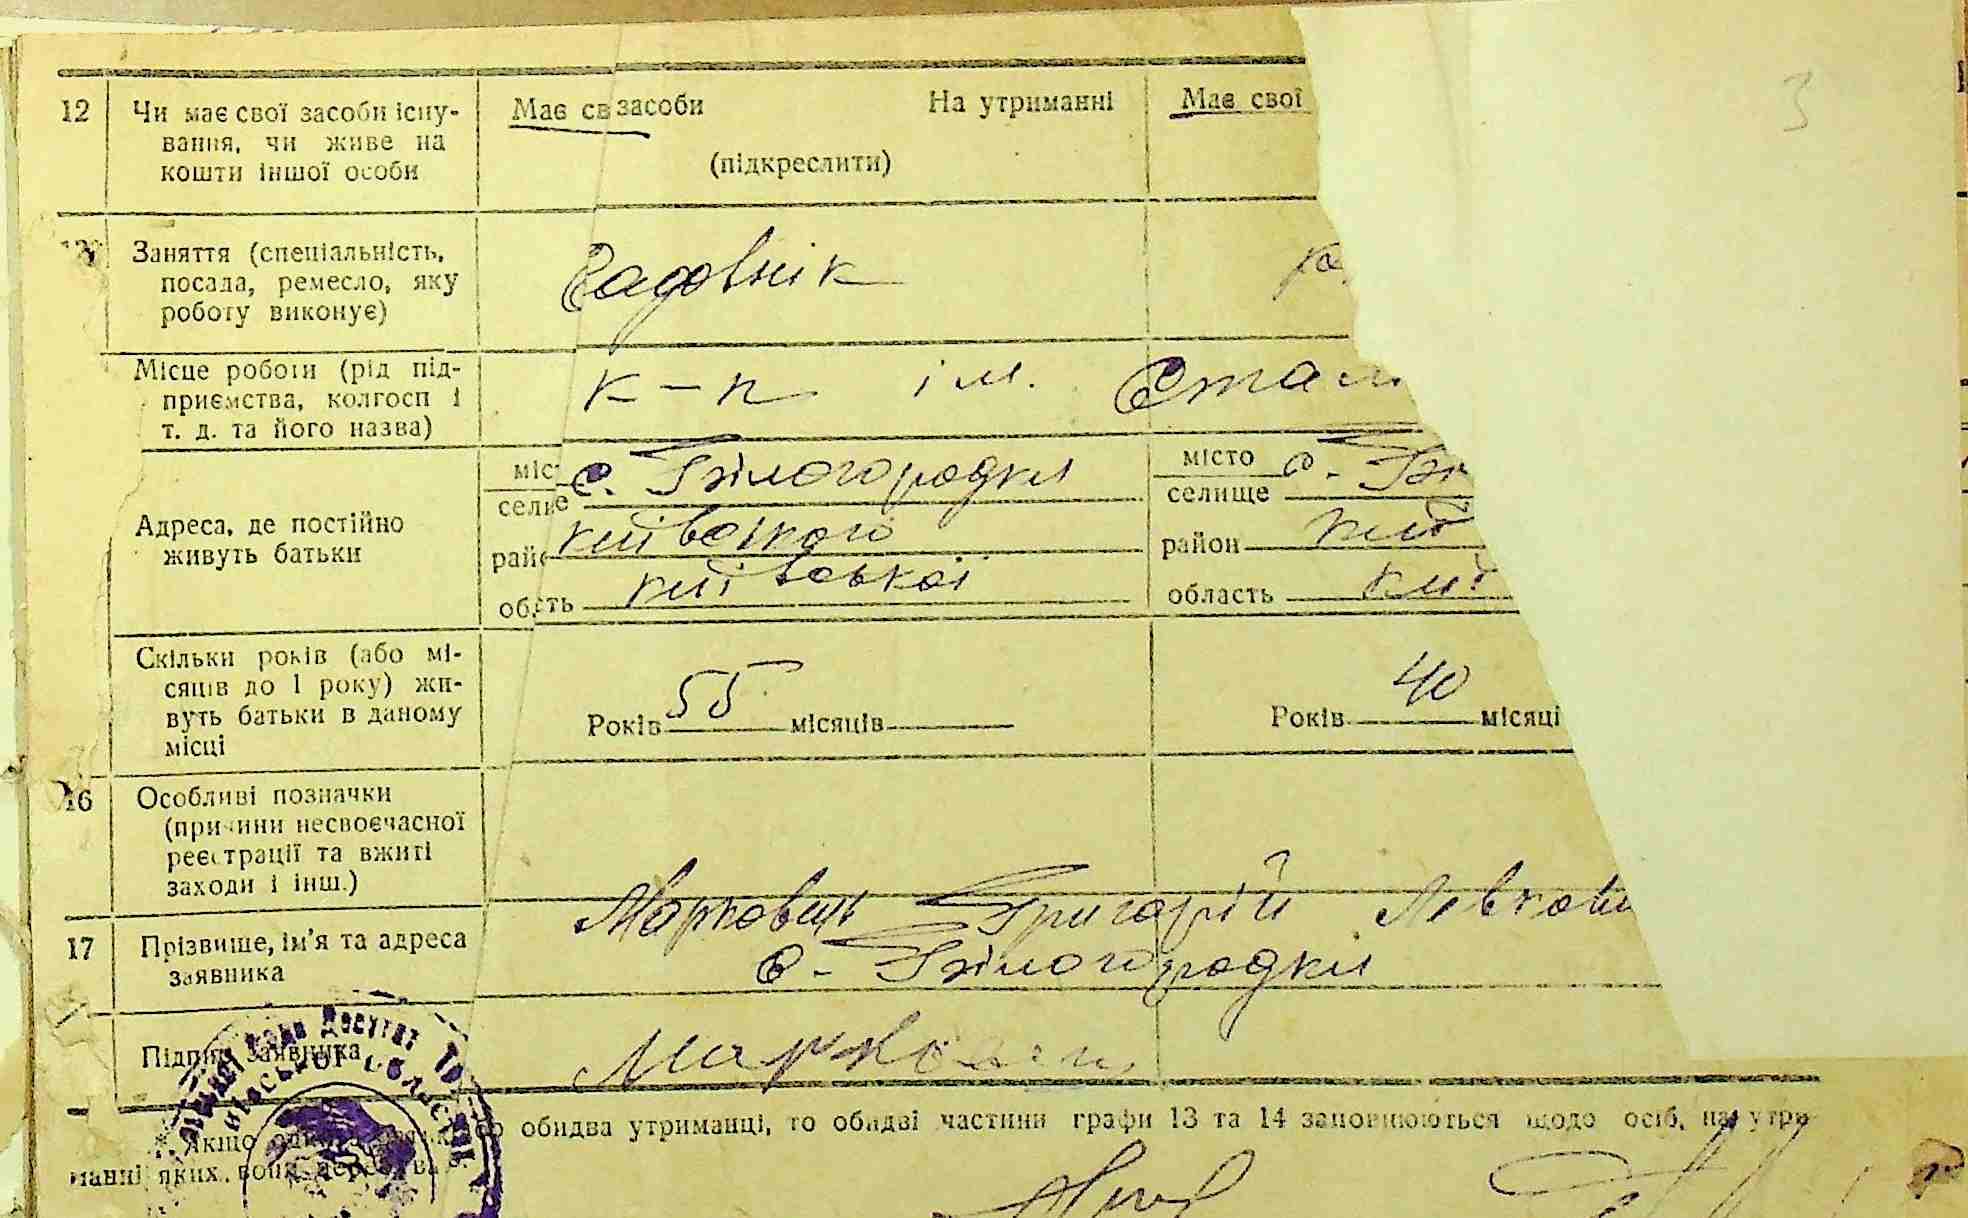 3
12 Чи має свої засоби існу-
вання, чи живе на
кошти іншої особи
Має св засоби На утриманні Має свої
(підкреслити)
Заняття (спеціальність,
посада, ремесло, яку
роботу виконує)
Садовнік
Місце роботи (рід під-
приємства, колгосп і
т. д. та його назва)
к-п ім. Стал
Адреса, де постійно
живуть батьки
міс с. Білогородки місто с. Бі
селище селище
рай київського район київ
область київської область київ
Скільки років (або мі-
сяців до 1 року) жи-
вуть батьки в даному
місці
Років 55 місяців Років 40 місяці
16 Особливі позначки
(причини несвоєчасної
реєстрації та вжиті
заходи і інш.)
17 Прізвище, ім'я та адреса
заявника
Марковець Григорій Левкови
с. Білогородки
Підпис заявника
обидва утриманці, то обидві частини графи 13 та 14 заповнюються щодо осіб, на утри-
манні яких вони